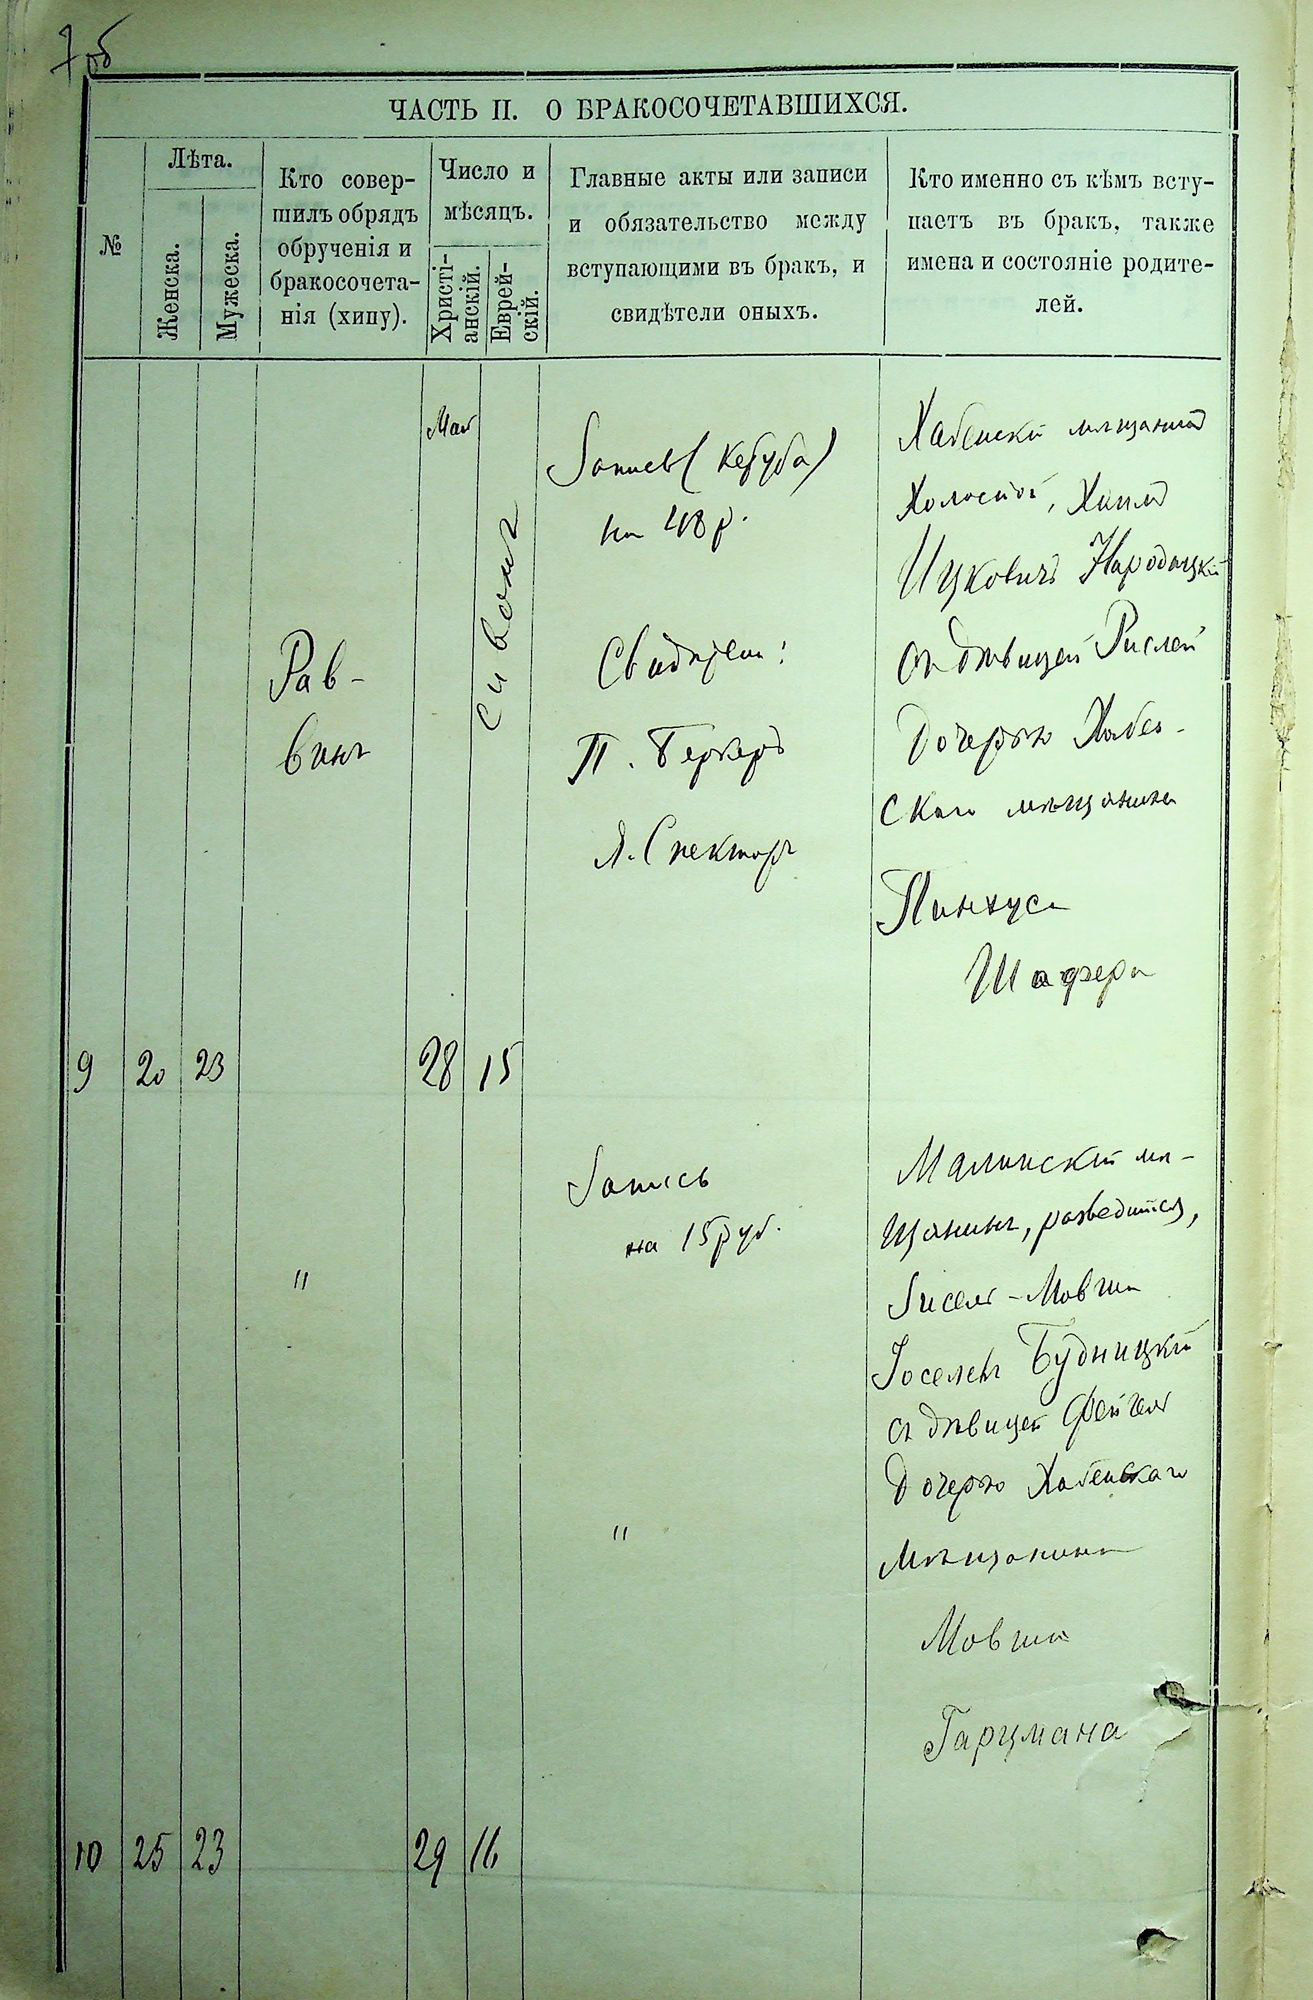 7 об
ЧАСТЬ II. О БРАКОСОЧЕТАВШИХСЯ.
№
Лѣта.
Женска.
Мужеска.
Кто совер-
шилъ обрядъ
обрученія и
бракосочета-
нія (хипу).
Число и
мѣсяцъ.
Христі-
анскій.
Еврей-
скій.
Главные акты или записи
и обязательство между
вступающими въ бракъ, и
свидѣтели оныхъ.
Кто именно съ кѣмъ всту-
паетъ въ бракъ, также
имена и состояніе родите-
лей.
Рав-
винъ
Май
Сивонъ
Запись (Кетуба)
на 48 р.
Свидѣтели:
П. Беркеръ
Я. Спекторъ
Хабенскій мѣщанинъ
Холостой, Хаимъ
Ицковичъ Народицкій
съ дѣвицей Рислей
дочерью Хабен-
скаго мѣщанина
Пинхуса
Шафера
9 20 23 28 15
"
Запись
на 15 руб.
"
Малинскій мѣ-
щанинъ, разведшійся,
Зисель-Мовша
Іоселевъ Будницкій
съ дѣвицей Фейгель
дочерью Хабенскаго
мѣщанина
Мовши
Гарцмана
10 25 23 29 16